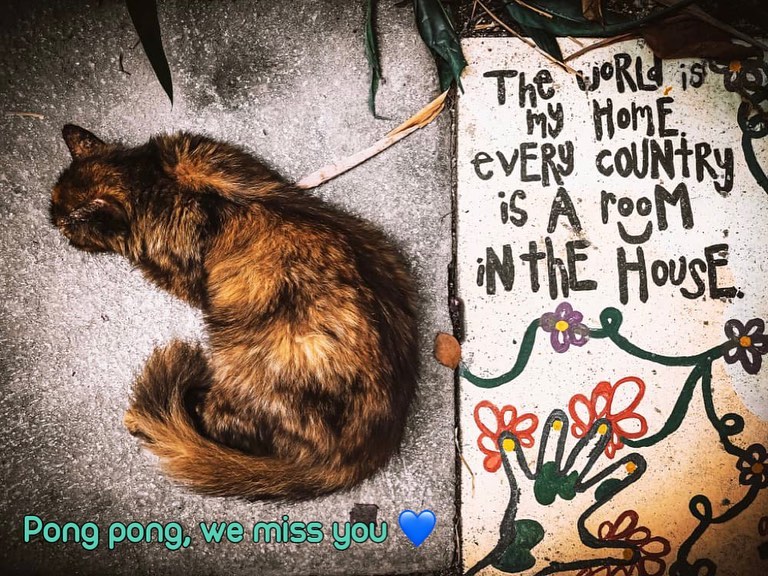 The WoRLd is
my HOME.
eVERy COUNtRy
is A rooM
iN thE HousE.
Pong pong, we miss you 💙